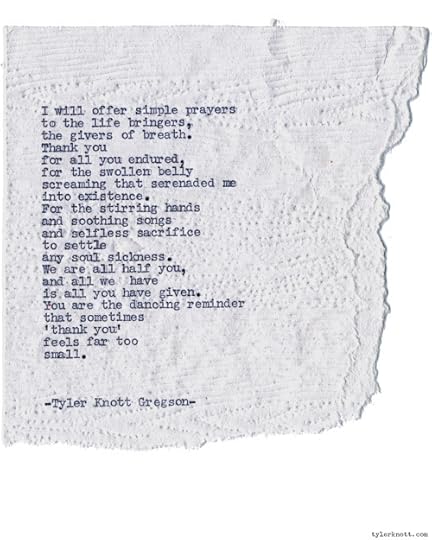 I will offer simple prayers
to the life bringers,
the givers of breath.
Thank you
for all you endured,
for the swollen belly
screaming that serenaded me
into existence.
For the stirring hands
and soothing songs
and selfless sacrifice
to settle
any soul sickness.
We are all half you,
and all we have
is all you have given.
You are the dancing reminder
that sometimes
'thank you'
feels far too
small.
-Tyler Knott Gregson-
tylerknott.com